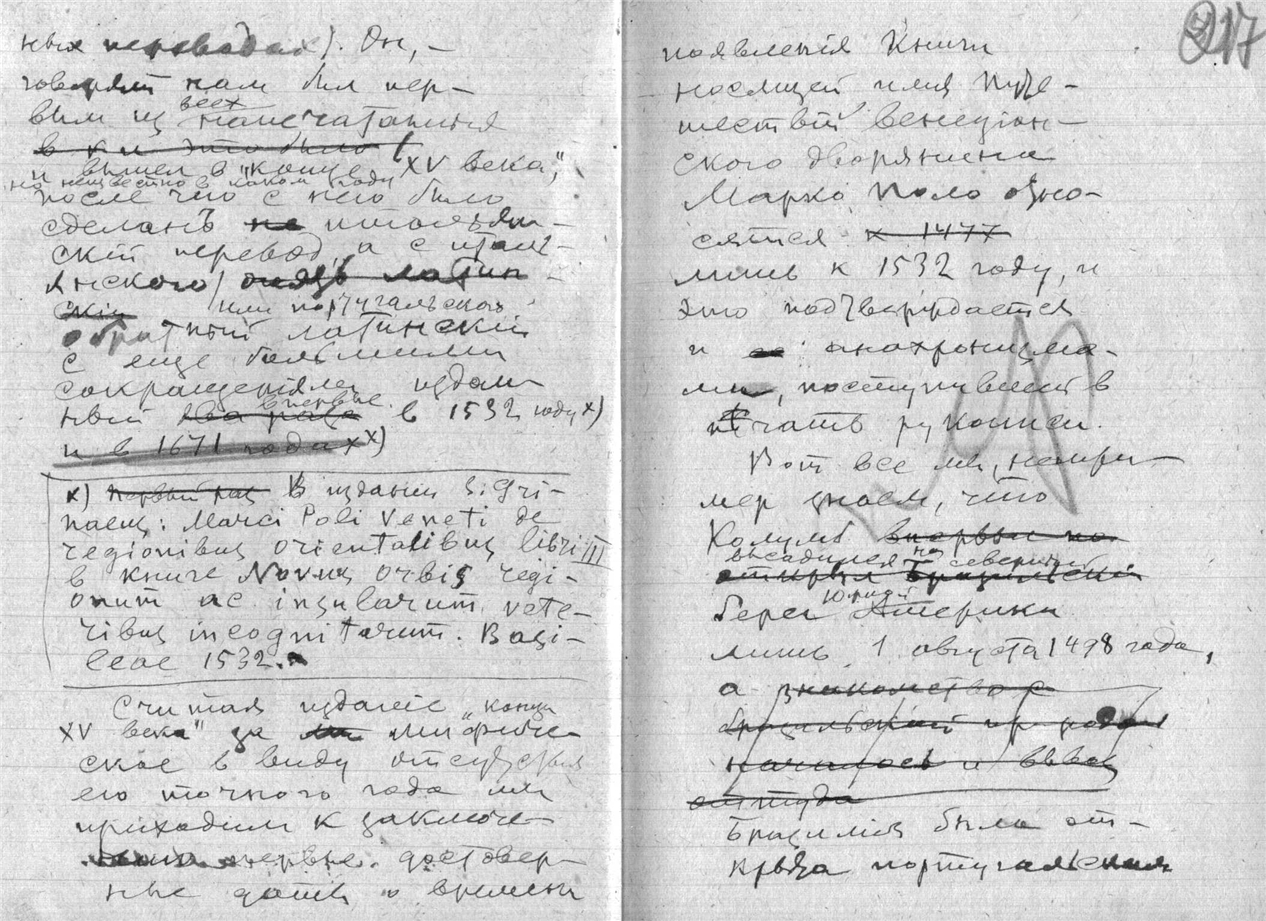 ных переводах). Он, –
говорят нам был пер-
вым из всех напечатанных
в к и это было
и вышел в "конце XV века",
но неизвестно в каком году
после чего с него было
сделанъ не итальян-
скій перевод, а с италь-
янского опять латин-
скій или португальского
обратный латинскій
с еще большими
сокращеніями издан-
ный два раза впервые в 1532 году х)
и в 1671 годах хх)
х) Первый раз В изданіи Sigri-
naeus: Marci Poli Veneti de
regionibus orientalibus libri III
в книге Novus orbis regi-
onum ac insularum vete-
ribus incognitarum. Basi-
leae 1532.
Считая изданіе "конца
XV века" за мифиче-
ское в виду отсутствія
его точного года мы
приходим к заключе-
первые достовер-
ные даты о времени
217
появленія Книги
носящей имя Путе-
шествій венеціан-
ского дворянина
Марко Поло отно-
сятся к 1477
лишь к 1532 году, и
это подтверждается
и анахронизма-
ми, поступившей в
печать рукописи.
Вот все мы, напри-
мер знаем, что
Колумб впервые по
высадился на северный
открыл бразильскій
берег Южной Америки
лишь 1 августа 1498 года,
а знакомство с
бразильской природой
началось и вывоз
оттуда
Бразилія была от-
крыта португальским